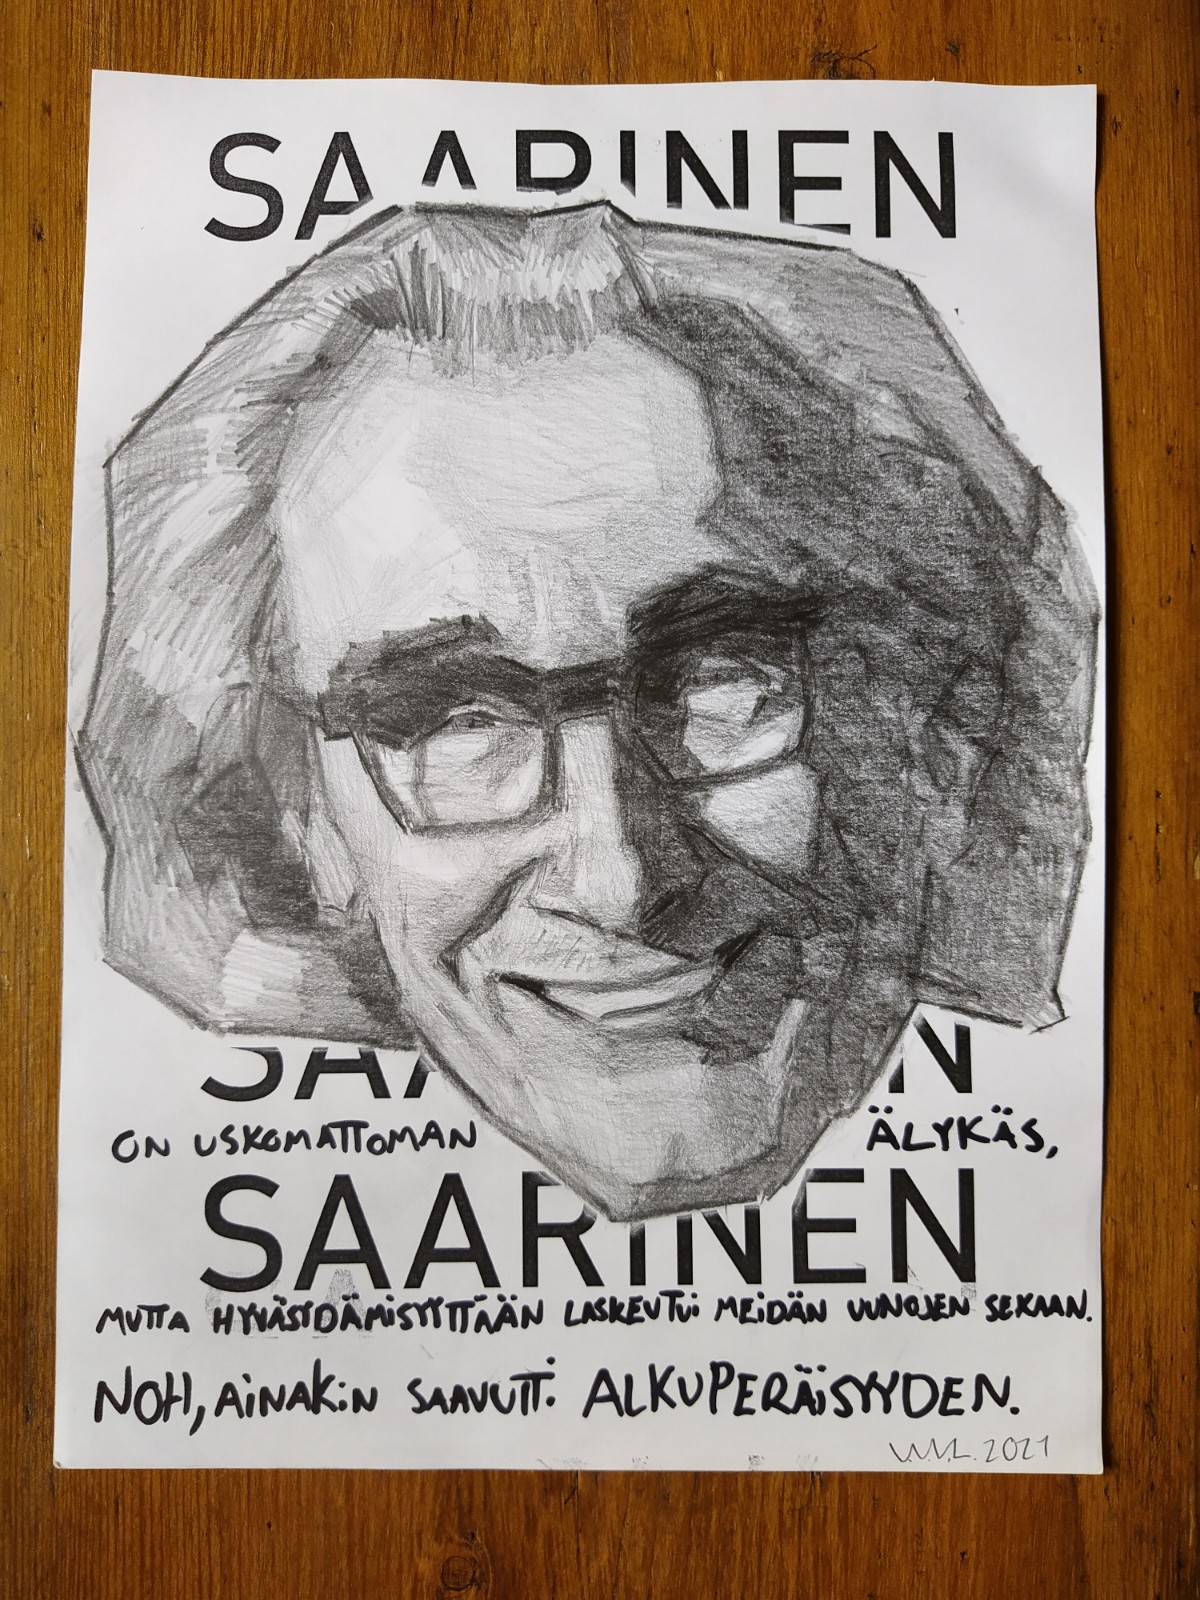 SAARINEN
SAA N
ON USKOMATTOMAN ÄLYKÄS,
SAARINEN
MUTTA HYVÄSYDÄMISYYTTÄÄN LASKEUTUI MEIDÄN UUNOJEN SEKAAN.
NOH, AINAKIN SAAVUTTI ALKUPERÄISYYDEN.
2021